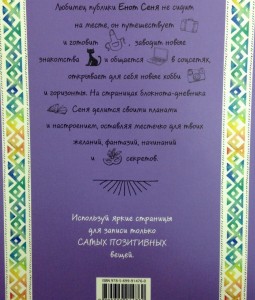 Любимец публики Енот Сеня не сидит
на месте, он путешествует
и готовит , заводит новое
знакомства и общается в соцсетях,
открывает для себя новое хобби
и горизонты. На страницах блокнота-дневника
Сеня делится своими планами
и настроением, оставляя местечко для твоих
желаний, фантазий, начинаний
и секретов.
Используй яркие страницы
для записи только
САМЫХ ПОЗИТИВНЫХ
вещей.